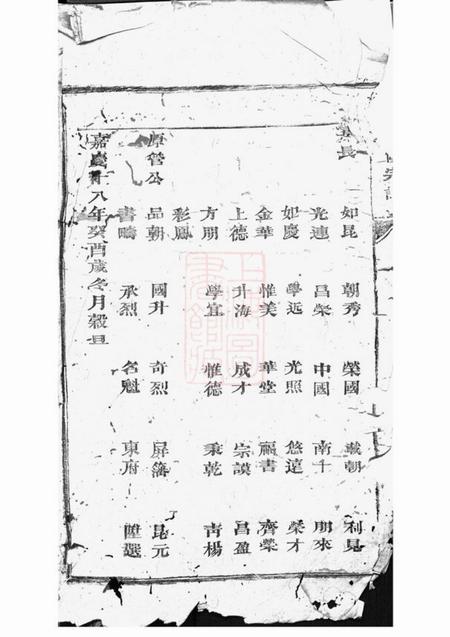 長
如昆 朝秀 榮國 載朝 利見
光連 昌榮 中國 南十 朋來
如慶 學远 光照 悠遠 榮才
金華 惟美 華堂 福書 齊榮
上德 升海 成才 宗謨 昌盈
方朋 學宜 惟德 秉乾 青楊
彩鳳
原管公 品朝 國升 奇烈 屏藩 昆元
書疇 承烈 名魁 東府 陞選
嘉慶十八年癸酉歲冬月穀旦